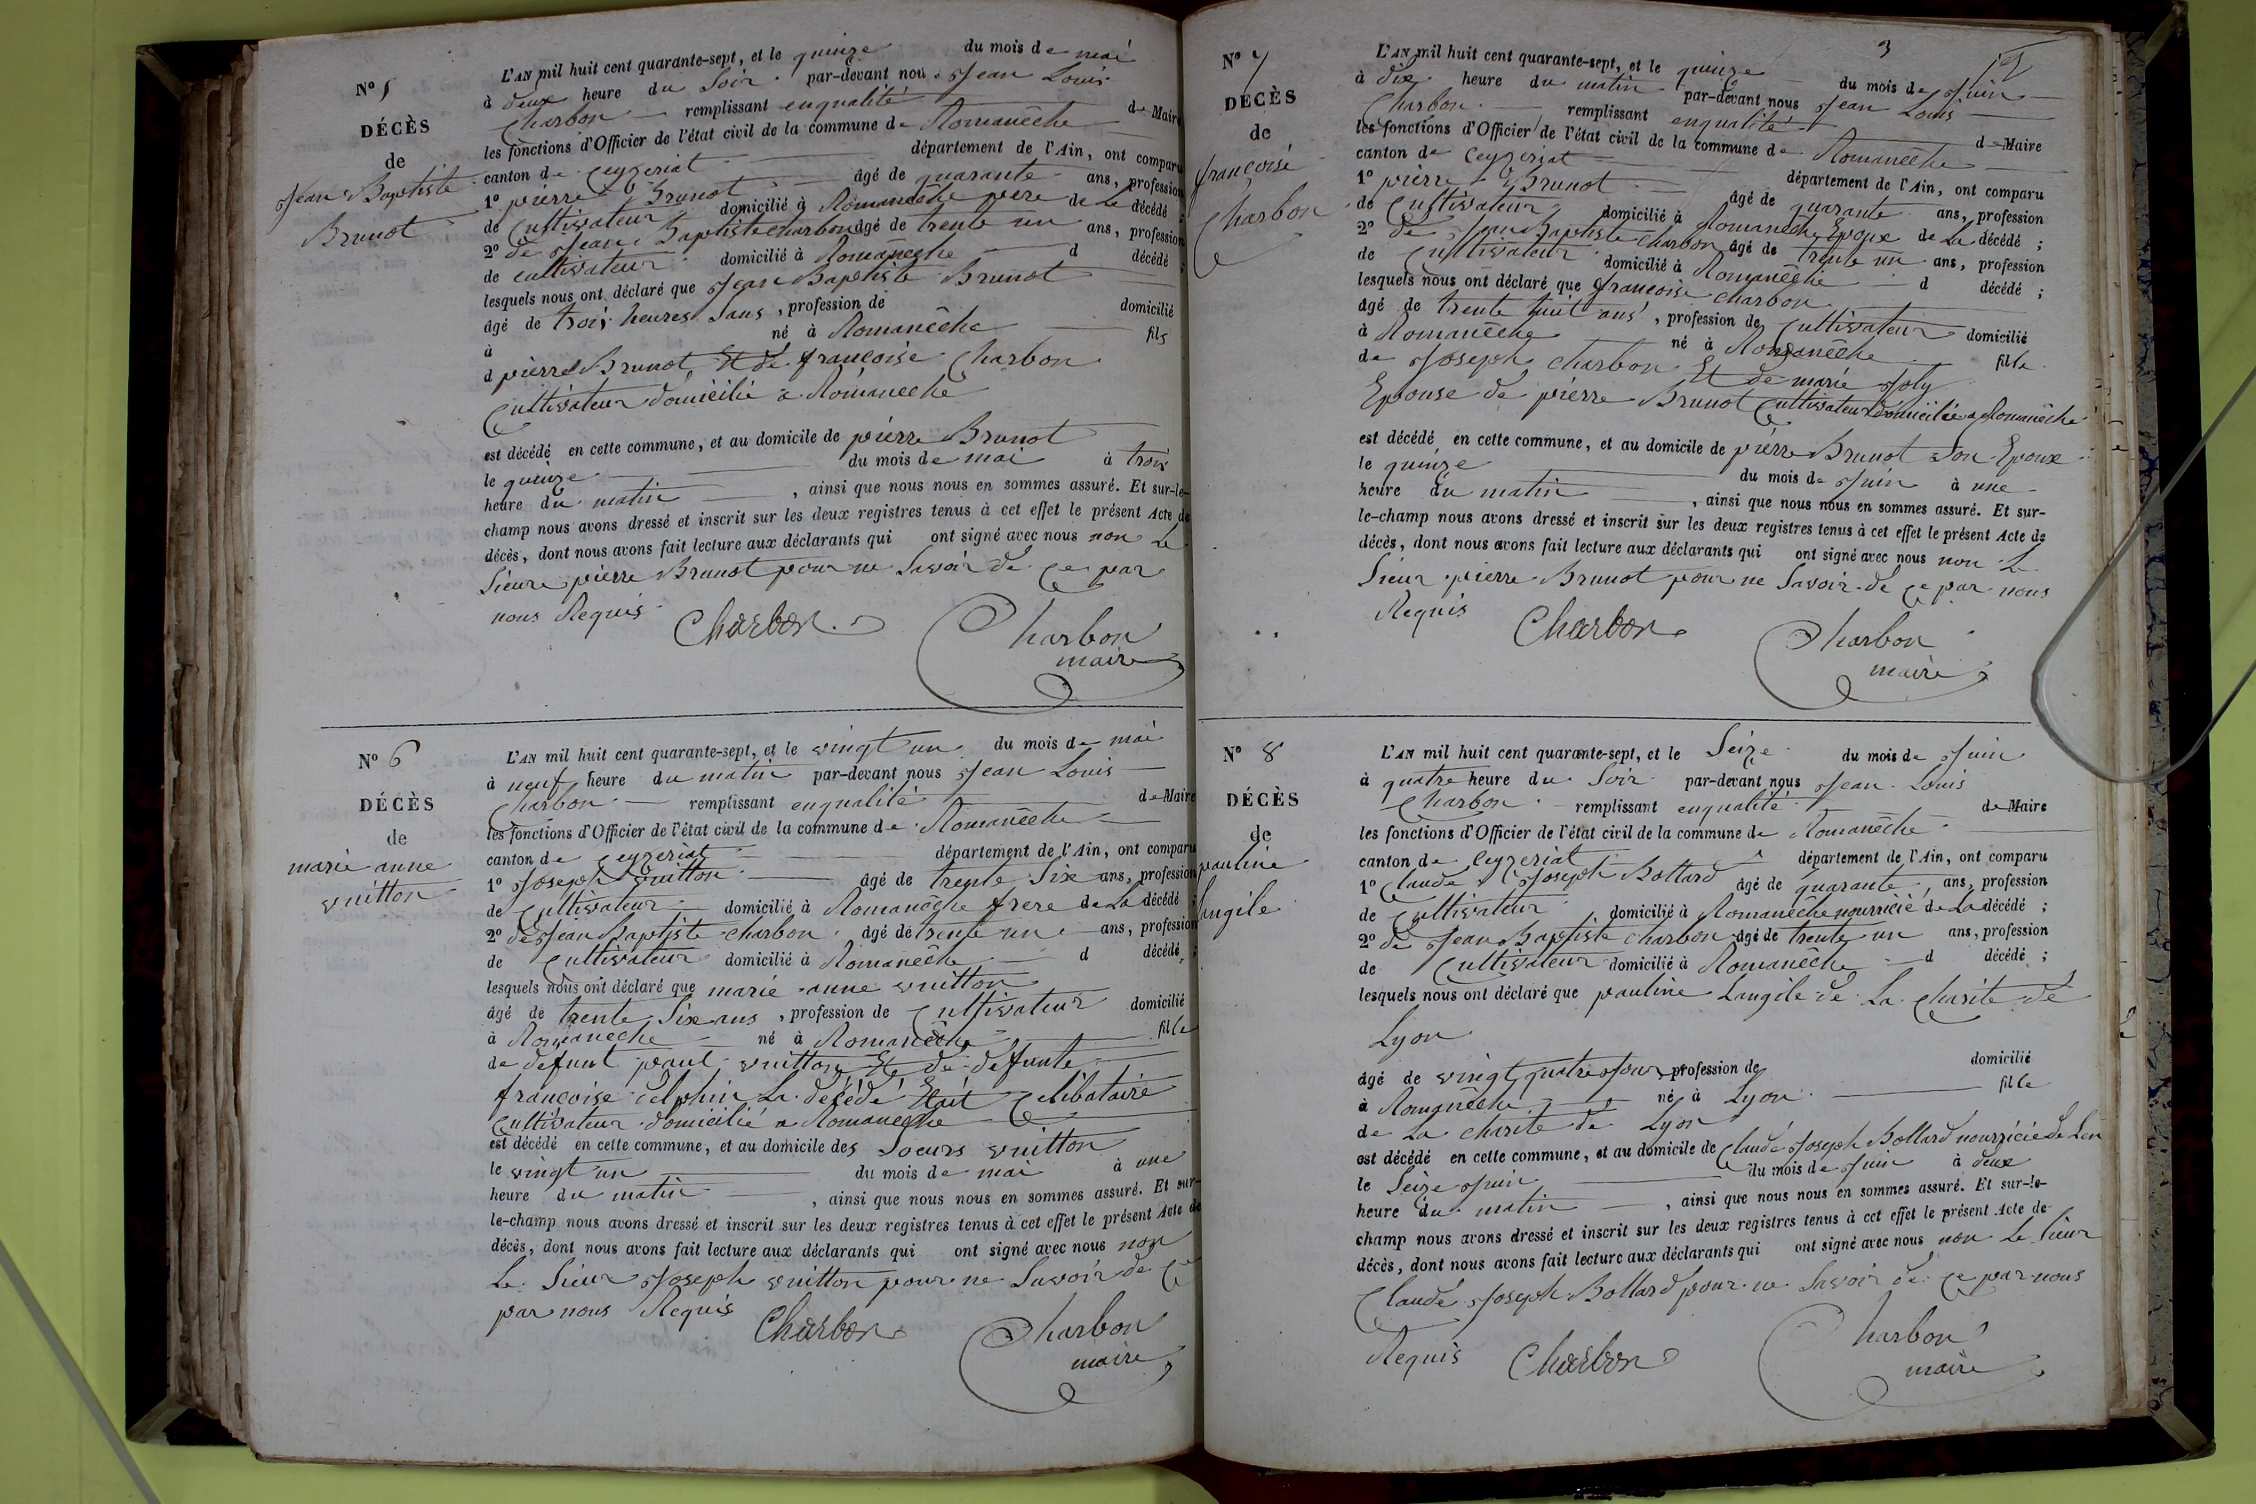 N° 5
DÉCÈS
de
Jean Baptiste
Brunot
L'AN mil huit cent quarante-sept, et le quinze du mois de mai
à deux heure du Soir par-devant nous Jean Louis
Charbon remplissant enqualité de Maire
les fonctions d'Officier de l'état civil de la commune de Romanêche
canton de Ceyzeriat département de l'Ain, ont comparu
1° pierre Brunot âgé de quarante ans, profession
de Cultivateur domicilié à Romanêche pere de Le décédé ;
2° de Jean Baptiste Charbon âgé de trente un ans, profession
de cultivateur domicilié à Romanêche d décédé ;
lesquels nous ont déclaré que Jean Baptiste Brunot
âgé de trois heures Sans, profession de domicilié
à né à Romanêche fils
d pierre Brunot Et de françoise Charbon
Cultivateur domicilié a Romanêche
est décédé en cette commune, et au domicile de pierre Brunot
le quinze du mois de mai à trois
heure du matin, ainsi que nous nous en sommes assuré. Et sur-le-
champ nous avons dressé et inscrit sur les deux registres tenus à cet effet le présent Acte de
décès, dont nous avons fait lecture aux déclarants qui ont signé avec nous non Le
Sieure pierre Brunot pour ne Savoir de Ce par
nous Requis
Charbon Charbon
maire
N° 6
DÉCÈS
de
marie anne
vuitton
L'AN mil huit cent quarante-sept, et le vingt un du mois de mai
à neuf heure du matin par-devant nous Jean Louis
Charbon remplissant enqualité de Maire
les fonctions d'Officier de l'état civil de la commune de Romanêche
canton de Ceyzeriat département de l'Ain, ont comparu
1° Joseph vuitton âgé de trente Six ans, profession
de Cultivateur domicilié à Romanêche frere de La décédé ;
2° de Jean Baptiste charbon âgé de trente un ans, profession
de Cultivateur domicilié à Romanêche d décédé ;
lesquels nous ont déclaré que marie anne vuitton
âgé de trente Six ans, profession de Cultivateur domicilié
à Romanêche né à Romanêche fille
de defunt paul vuitton Et de défunte
françoise delphin La décédé Etait Celibataire
Cultivateur domicilié a Romanêche
est décédé en cette commune, et au domicile des Soeurs vuitton
le vingt un du mois de mai à une
heure du matin, ainsi que nous nous en sommes assuré. Et sur-
le-champ nous avons dressé et inscrit sur les deux registres tenus à cet effet le présent Acte de
décès, dont nous avons fait lecture aux déclarants qui ont signé avec nous non
Le Sieur Joseph vuitton pour ne Savoir de Ce
par nous Requis
Charbon Charbon
maire
3
N° 7
DÉCÈS
de
françoise
Charbon
L'AN mil huit cent quarante-sept, et le quinze du mois de Juin
à dix heure du matin par-devant nous Jean Louis
Charbon remplissant enqualité de Maire
les fonctions d'Officier de l'état civil de la commune de Romanêche
canton de Ceyzeriat département de l'Ain, ont comparu
1° pierre Brunot âgé de quarante ans, profession
de Cultivateur domicilié à Romanêche Epoux de La décédé ;
2° de Jean Baptiste Charbon âgé de trente un ans, profession
de Cultivateur domicilié à Romanêche d décédé ;
lesquels nous ont déclaré que françoise charbon
âgé de trente huit ans, profession de Cultivateur domicilié
à Romanêche né à Romanêche fille
de Joseph charbon Et de marie Joly
Epouse de pierre Brunot Cultivateur domicilié a Romanêche
est décédé en cette commune, et au domicile de pierre Brunot Son Epoux
le quinze du mois de Juin à une
heure du matin, ainsi que nous nous en sommes assuré. Et sur-
le-champ nous avons dressé et inscrit sur les deux registres tenus à cet effet le présent Acte de
décès, dont nous avons fait lecture aux déclarants qui ont signé avec nous non Le
Sieur pierre Brunot pour ne Savoir de Ce par nous
Requis
Charbon Charbon
maire
N° 8
DÉCÈS
de
pauline
Langile
L'AN mil huit cent quarante-sept, et le Seize du mois de Juin
à quatre heure du Soir par-devant nous Jean Louis
Charbon remplissant enqualité de Maire
les fonctions d'Officier de l'état civil de la commune de Romanêche
canton de Ceyzeriat département de l'Ain, ont comparu
1° Claude Joseph Bottard âgé de quarante, ans, profession
de Cultivateur domicilié à Romanêche nourricie de La décédé ;
2° de Jean Baptiste charbon âgé de trente un ans, profession
de Cultivateur domicilié à Romanêche d décédé ;
lesquels nous ont déclaré que pauline Langile de La Charite de
Lyon
âgé de vingt quatre Jour, profession de domicilié
à Romanêche né à Lyon fille
de La charite de Lyon
est décédé en cette commune, et au domicile de Claude Joseph Bottard nourricie de Len
le Seize Juin du mois de Juin à deux
heure du matin, ainsi que nous nous en sommes assuré. Et sur-le-
champ nous avons dressé et inscrit sur les deux registres tenus à cet effet le présent Acte de
décès, dont nous avons fait lecture aux déclarants qui ont signé avec nous non Le Sieur
Claude Joseph Bottard pour ne Savoir de Ce par nous
Requis
Charbon Charbon
maire